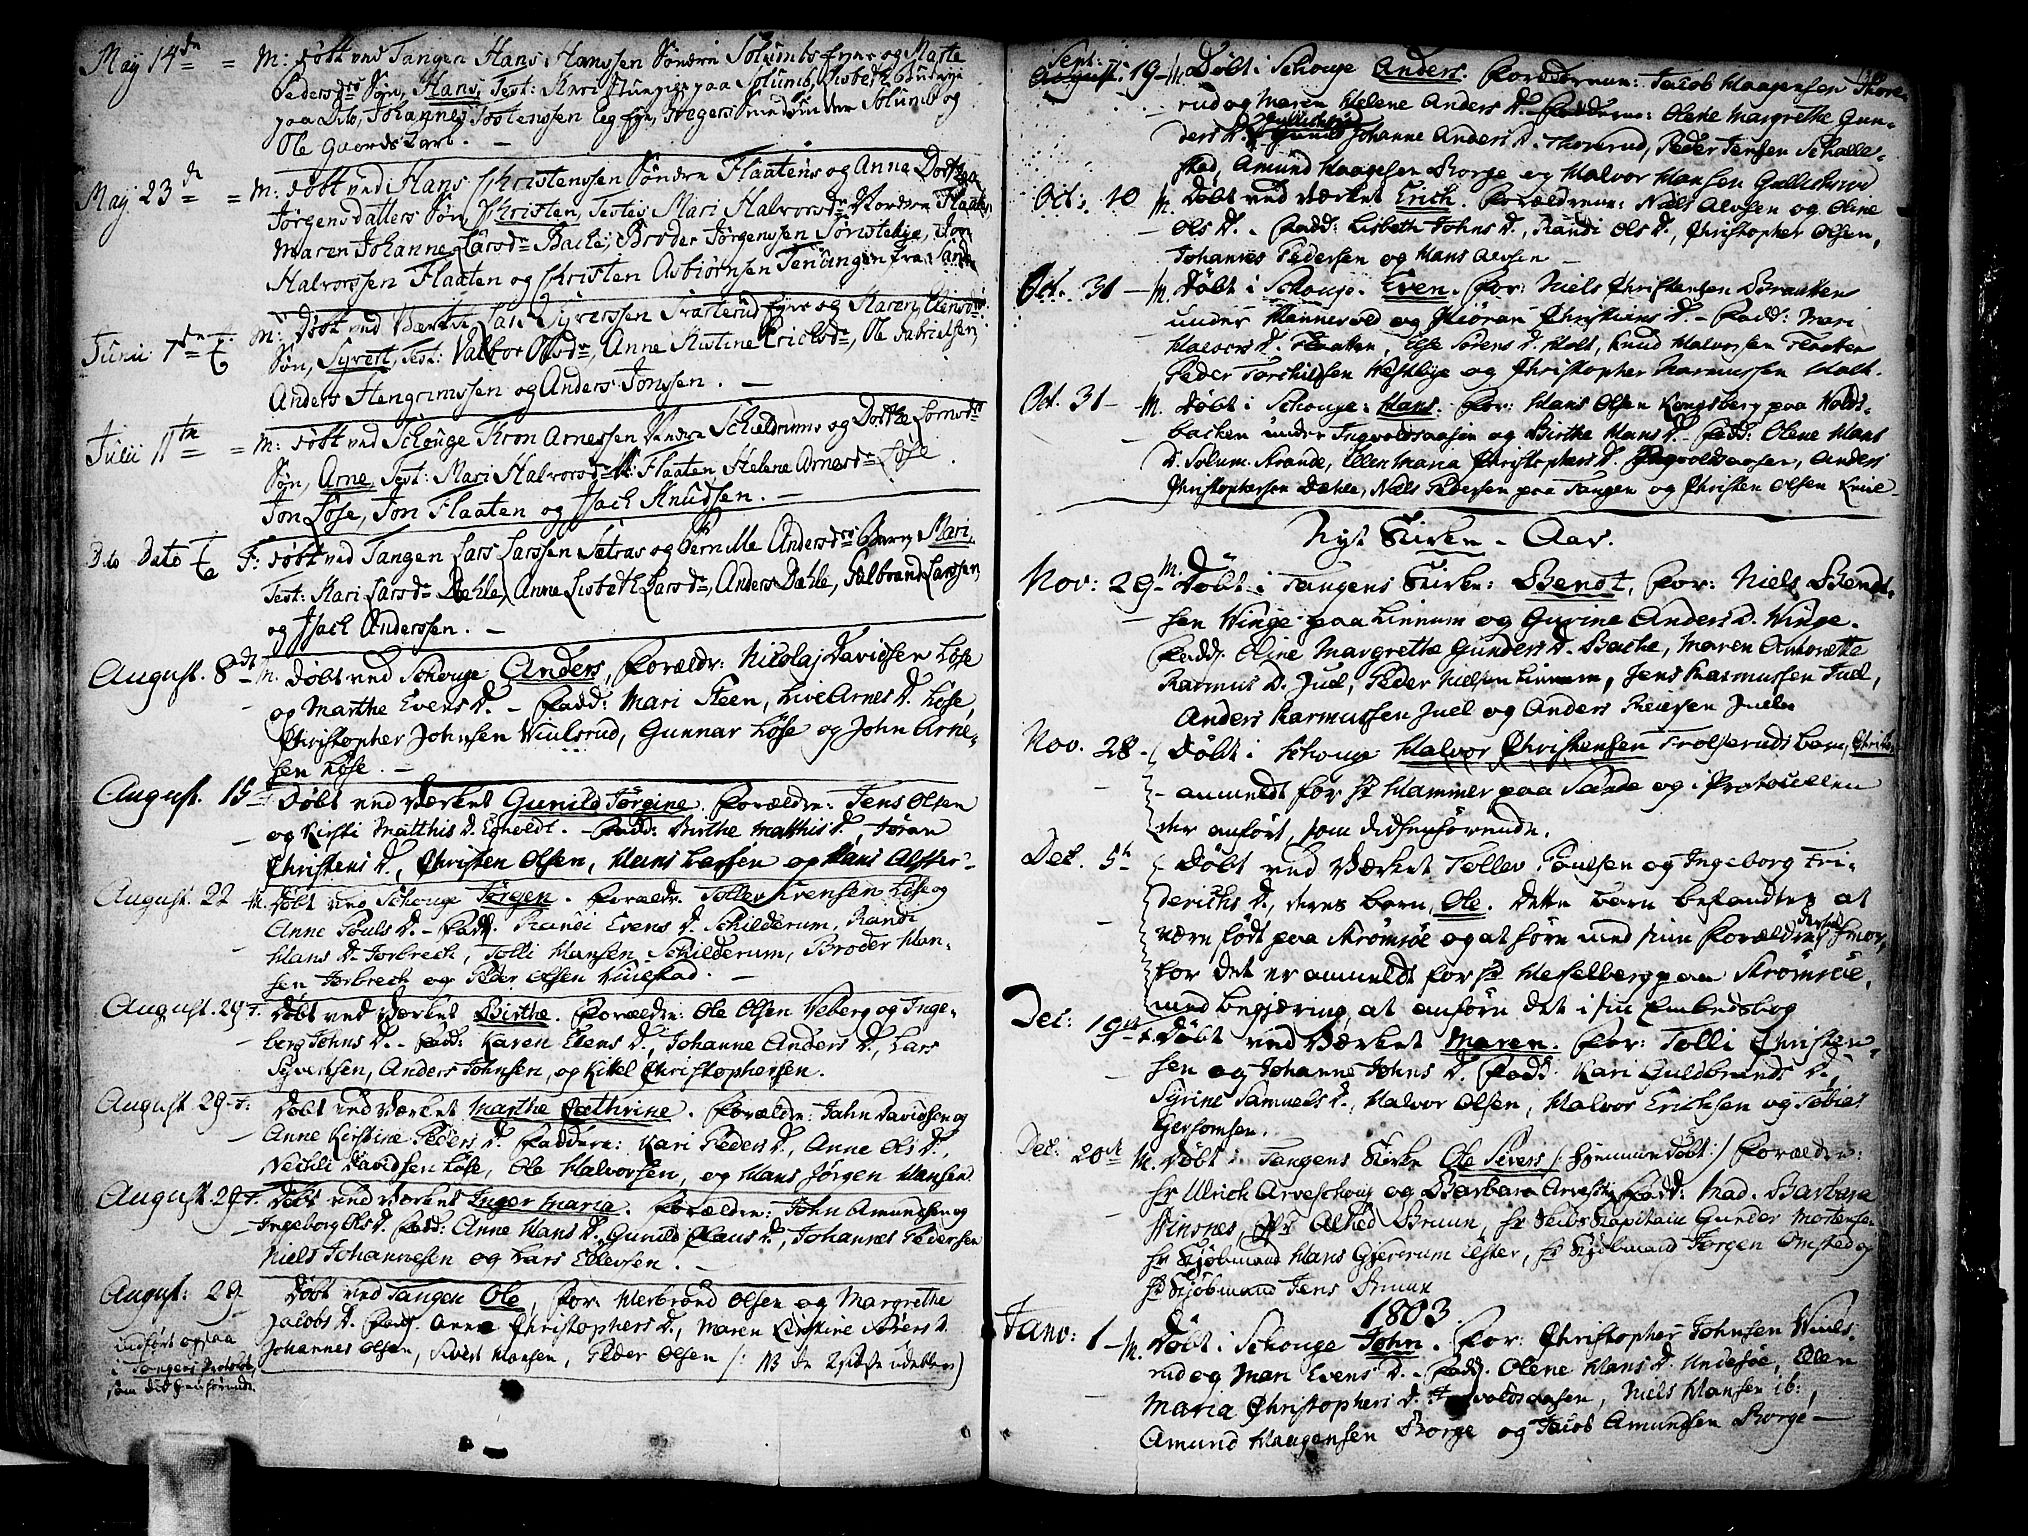 May 14de = M: døbt ved Tangen Hans Hanssen Søndre Solumbs fyne og Marte
Pedersdrs Søn, Hans, Test: Kari paa Solumb, Lisbeth
paa Dito, Johannes Tostenssen Eegfyn, under Solumb og
Ole Gaardskarl. –
May 23de = M: døbt ved Hans Christenssen Søndre Flaatens og Anne Dorthea
Jørgensdatters Søn, Christen, Testes Mari Halvorsdr Nordre Flaat:
Maren Johanne Larsdr Bache, Broder Jørgenssen Søristebye, Jon
Halvorssen Flaaten og Christen Asbiørnsen fra Sande
Junii 7de M: døbt ved Værket Lars Syverssen Svarterud fyre og Karen Olensdr:
Søn, Syvert, Test: Valbor Olsdr, Anne Kistine Ericksdr, Ole Gabrielsen,
Anders Hengrimssen og Anders Jonssen. –
Julii 11te = M: døbt ved Schouge Tron Arnessen Vendre Schieldrums og Dorthe Larsdrs
Søn, Arne, Test: Mari Halvorsdr N: Flaaten Helene Arnesdr Løse.
Jon Løse, Jon Flaaten og Isach Knudssen. –
Dito Dato F: døbt ved Tangen Lars Larssen Sætras og Pernille Andersdrs Barn, Mari,
Test: Kari Larsdr Dæhle, Anne Lisbeth Larsdr, Anders Dæhle, Gulbrand Larssen,
og Isach Anderssen. –
August. 8de M. Døbt ved Schouge Anders, Forældr: Nicolaj Davidsen Løse
og Marthe Evens D. – Fadd: Mari Steen, Live Arnes D. Løse,
Christopher Johnsen Viulsrud, Gunnar Løse og John Arne-
sen Løse. –
August. 15 Døbt ved Værket Gunild Jørgine. Forældre: Jens Olsen
og Kirsti Matthis D. Egholdt. – Fadd: Birthe Matthis D., Jøran
Christens D., Christen Olsen, Hans Larsen og Hans
August. 22 M. Døbt ved Schouge Jørgen. Forældr. Tollev Evensen Løse og
Anne Pouls D. – Fadd. Randi Evens D. Schilderum, Randi
Hans D. Torbrech, Tolli Hansen Schilderum, Broder Han-
sen Torbrech og Peder Olsen Viulstad. –
August. 29 F. Døbt ved Værket Birthe. Forældre: Ole Olsen Veberg og Inge-
berg Johns D. – Fadd: Karen Evens D., Johanne Anders D., Lars
Syvertsen, Anders Johnsen, og Kittel Christophersen.
August. 29 F: Døbt ved Værket Marthe Cathrine. Forældre: John Davidsen og
Anne Kirstine Peders D. Faddere: Kari Peders D., Anne Ols D.,
Nechli Davidsen Løse, Ole Halvorsen, og Hans Jørgen Hansen
August. 29 F. Døbt ved Værket Inger Maria. Forældre: John Amundsen og
Ingeborg Ols D. Fadd: Anne Hans D., Gunild Claus D., Johannes Pedersen
Niels Johannesen og Lars Ellevsen. –
August: 29 Døbt ved Tangen Ole, For: Herbrand Olsen og Margrethe
Jacobs D. Fadd. Anne Christophers D., Maren Kirstine Sivers D.
indført ogsaa Johannes Olsen, Sivert Hansen, Peder Olsen (: NB
i Tangens Protokol,
som did henhørende.
Sept:
August: 19 – M. Døbt i Schouge Anders. Forældrene: Jacob Haagensen Thore-
rud og Maren Helene Anders D. – Fadderne: Olene Margrethe Gun-
ders D. Johanne Anders D. Thorerud, Peder Jensen Schalle-
stad, Amund Haagesen Borge og Halvor Hansen Gullichsrud
Oct: 10 M. Døbt ved Værket Erich. Forældrene: Niels Alvsen og Oline
Ols D. – Fadd: Lisbeth Johns D., Randi Ols D., Christopher Olsen,
Johannes Pedersen og Hans Alvsen –
Oct. 31 – M. Døbt i Schouge. Even. For: Niels Christensen Braaten
under Hannevold og Jøran Christens D. – Fadd: Mari
Halvors D. Flaaten, Else Sørens D. Holt, Knud Halvorsen Flaaten
Peder Torchildsen Westbye og Christopher Rasmussen Holt.
Oct. 31 – M. Døbt i Schouge: Hans. For: Hans Olsen Kongsberg paa Wolds-
backen under Ingvoldsaasen og Birthe Hans D. – Fadd: Olene Hans
D. Solum Strande, Ellen Maria Christophers D. Ingvoldsaasen, Anders
Christophersen Dæhle, Niels Pedersen paa Tangen og Christen Olsen
Nyt Kirke – Aar.
Nov: 29 – M. Døbt i Tangens Kirke: Bendt, For: Niels Bendt-
sen Winge paa Linnum og Gurine Anders D. Winge.
Fadd. Oline Margrethe Gunders D. Bache, Maren Antonette
Rasmus D. Juel, Peder Nielsen Linnum, Jens Rasmussen Juel,
Anders Rasmussen Juel og Anders Reiersen Juel
Nov. 28 – Døbt i Schouge Halvor Christensen Trolserud's barn,
– anmeldt for Hr Hammer paa Sande og i Protocollen
der anført, som did henhørende.
Dec. 5te – Døbt ved Værket Tollev Poulsen og Ingeborg Fri-
derichs D., deres barn, Ole. Dette barn befandtes at
være født paa Strømsøe og at høre med sine Forældre dertil,
for det er anmeldt for Hr Hesselberg paa Strømsøe,
med begjæring, at anføre det i sin Embedsbog
Dec: 19de F. Døbt ved Værket Maren. For: Tolli Christen-
sen og Johanne Johns D. Fadd: Kari Guldbrands D.,
Syrine Samuels D., Halvor Olsen, Halvor Erichsen og Tobias
Gersomsen.
Dec: 20de M. Døbt i Tangens Kirke Ole Sivers (: hiemmedøbt :) Forældre:
Hr Ulrich Arveschoug og Barbara Arvesch. Fadd: Mad. Barbara
Hinsnes, Alhed Bruun, Hr Skibs Kapitain Gunder Mortensen
Hr Kjøbmand Hans Gjererum Elster, Hr Kjøbmand Jørgen Omsted og
Hr Kjøbmand Jens Bruun
1803
Janv: 1 – M. Døbt i Schouge John. For: Christopher Johnsen Viuls-
rud og Mari Evens D. – Fadd. Olene Hans D. Undesøe, Ellen
Maria Christophers D. Ingvoldsaasen, Niels Hansen ib:,
Amund Haagensen Borge og Jacob Amundsen Borge –